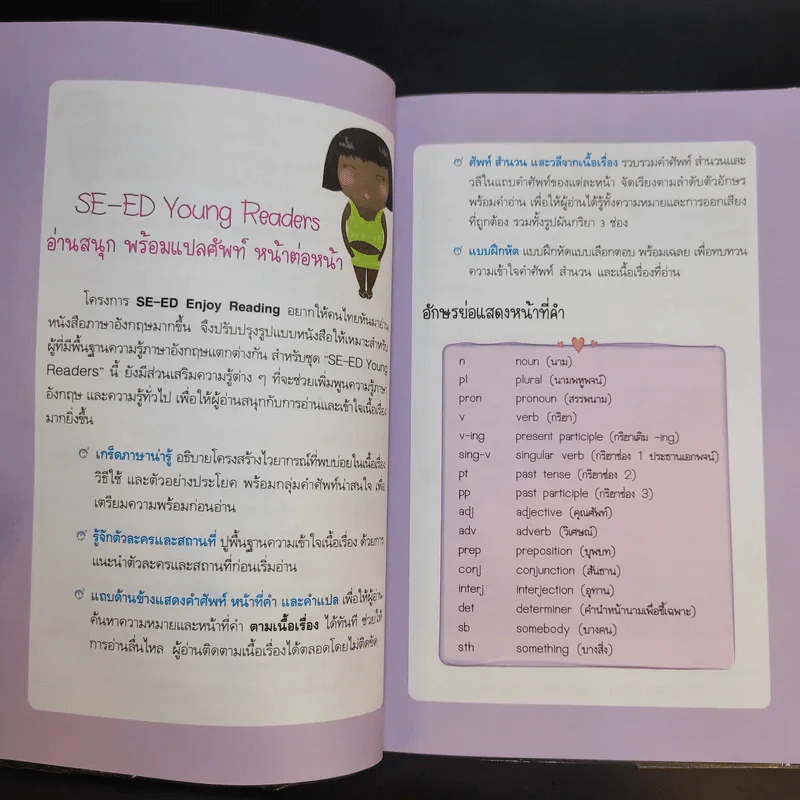 SE-ED Young Readers
อ่านสนุก พร้อมแปลศัพท์ หน้าต่อหน้า
โครงการ SE-ED Enjoy Reading อยากให้คนไทยหันมาอ่าน
หนังสือภาษาอังกฤษมากขึ้น จึงปรับปรุงรูปแบบหนังสือให้เหมาะสำหรับ
ผู้ที่มีพื้นฐานความรู้ภาษาอังกฤษแตกต่างกัน สำหรับชุด "SE-ED Young
Readers" นี้ ยังมีส่วนเสริมความรู้ต่าง ๆ ที่จะช่วยเพิ่มพูนความรู้ภาษา
อังกฤษ และความรู้ทั่วไป เพื่อให้ผู้อ่านสนุกกับการอ่านและเข้าใจเนื้อเรื่อง
มากยิ่งขึ้น
เกร็ดภาษาน่ารู้ อธิบายโครงสร้างไวยากรณ์ที่พบบ่อยในเนื้อเรื่อง
วิธีใช้ และตัวอย่างประโยค พร้อมกลุ่มคำศัพท์น่าสนใจ เพื่อ
เตรียมความพร้อมก่อนอ่าน
รู้จักตัวละครและสถานที่ ปูพื้นฐานความเข้าใจเนื้อเรื่อง ด้วยการ
แนะนำตัวละครและสถานที่ก่อนเริ่มอ่าน
แถบด้านข้างแสดงคำศัพท์ หน้าที่คำ และคำแปล เพื่อให้ผู้อ่าน
ค้นหาความหมายและหน้าที่คำ ตามเนื้อเรื่อง ได้ทันที ช่วยให้
การอ่านลื่นไหล ผู้อ่านติดตามเนื้อเรื่องได้ตลอดโดยไม่ติดขัด
ศัพท์ สำนวน และวลีจากเนื้อเรื่อง รวบรวมคำศัพท์ สำนวนและ
วลีในแถบคำศัพท์ของแต่ละหน้า จัดเรียงตามลำดับตัวอักษร
พร้อมคำอ่าน เพื่อให้ผู้อ่านได้รู้ทั้งความหมายและการออกเสียง
ที่ถูกต้อง รวมทั้งรูปผันกริยา 3 ช่อง
แบบฝึกหัด แบบฝึกหัดแบบเลือกตอบ พร้อมเฉลย เพื่อทบทวน
ความเข้าใจคำศัพท์ สำนวน และเนื้อเรื่องที่อ่าน
อักษรย่อแสดงหน้าที่คำ
n noun (นาม)
pl plural (นามพหูพจน์)
pron pronoun (สรรพนาม)
v verb (กริยา)
v-ing present participle (กริยาเติม -ing)
sing-v singular verb (กริยาช่อง 1 ประธานเอกพจน์)
pt past tense (กริยาช่อง 2)
pp past participle (กริยาช่อง 3)
adj adjective (คุณศัพท์)
adv adverb (วิเศษณ์)
prep preposition (บุพบท)
conj conjunction (สันธาน)
interj interjection (อุทาน)
det determiner (คำนำหน้านามเพื่อชี้เฉพาะ)
sb somebody (บางคน)
sth something (บางสิ่ง)